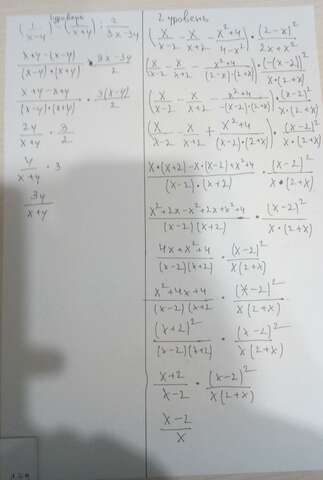 1 уровень
(1/(x-y) - 1/(x+y)) : 2/(3x-3y)
(x+y-(x-y))/((x-y)·(x+y)) · (3x-3y)/2
(x+y-x+y)/((x-y)·(x+y)) · 3(x-y)/2
2y/(x+y) · 3/2
y/(x+y) · 3
3y/(x+y)
2 уровень
(x/(x-2) - x/(x+2) - (x²+4)/(4-x²)) · (2-x)²/(2x+x²)
(x/(x-2) - x/(x+2) - (x²+4)/((2-x)·(2+x))) · (-(x-2))²/(x·(2+x))
(x/(x-2) - x/(x+2) - (x²+4)/(-(x-2)·(2+x))) · (x-2)²/(x·(2+x))
(x/(x-2) - x/(x+2) + (x²+4)/((x-2)·(2+x))) · (x-2)²/(x·(2+x))
(x·(x+2)-x·(x-2)+x²+4)/((x-2)·(x+2)) · (x-2)²/(x·(2+x))
(x²+2x-x²+2x+x²+4)/((x-2)(x+2)) · (x-2)²/(x·(2+x))
(4x+x²+4)/((x-2)(x+2)) · (x-2)²/(x(2+x))
(x²+4x+4)/((x-2)(x+2)) · (x-2)²/(x(2+x))
(x+2)²/((x-2)(x+2)) · (x-2)²/(x(2+x))
(x+2)/(x-2) · (x-2)²/(x(2+x))
(x-2)/x